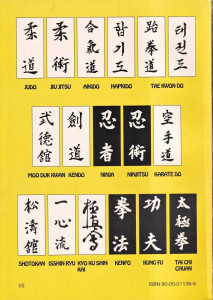 柔道
柔術
合氣道
합기도
跆拳道
태권도
JUDO
JIU JITSU
AIKIDO
HAPKIDO
TAE KWON DO
武德館
劍道
忍者
忍術
空手道
MOO DUK KWAN
KENDO
NINJA
NINJITSU
KARATE DO
松濤館
一心流
極真会
拳法
功夫
太極拳
SHOTOKAN
ISSHIN RYU
KYO KU SHIN
KAI
KENPO
KUNG FU
TAI CHI
CHUAN
ISBN